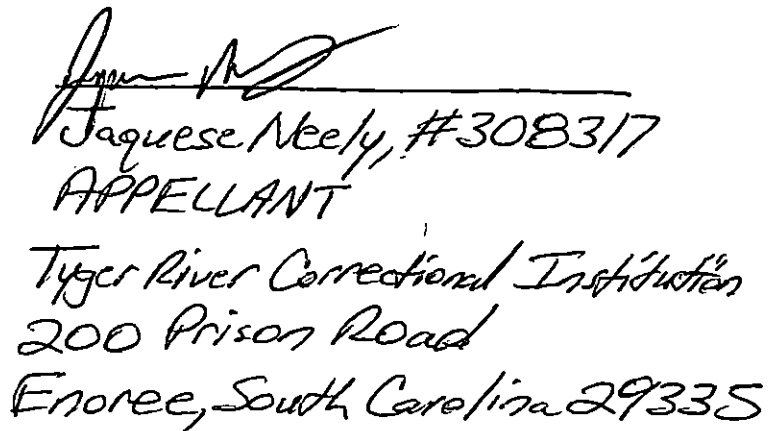 Jaquese Neely, #308317
APPELLANT
Tyger River Correctional Institution
200 Prison Road
Enoree, South Carolina 29335